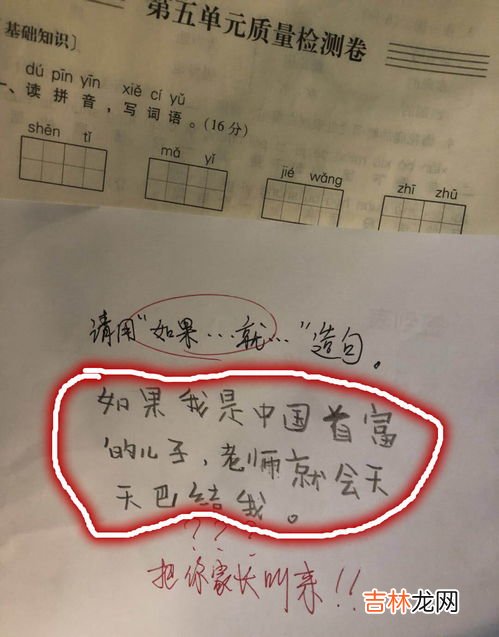 第五单元质量检测卷
基础知识〕
dú pīn yīn xiě cí yǔ
一、读拼音，写词语。(16分)
shēn tǐ mǎ yǐ jié wǎng zhī zhū
请用“如果…就…”造句。
如果我是中国首富
的儿子，老师就会天
天巴结我。
???
把你家长叫来!!
吉林龙网